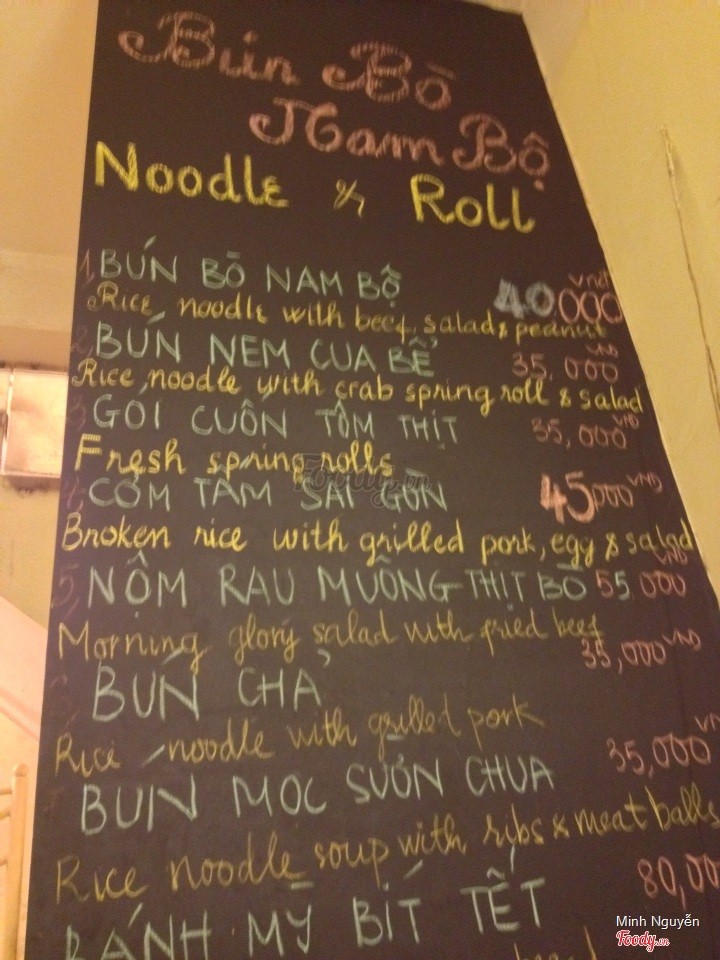 Bún Bò
Nam Bộ
Noodle & Roll
1, BÚN BÒ NAM BỘ 40.000 vnđ
Rice noodle with beef, salad & peanut
2, BÚN NEM CUA BỂ 35,000 VND
Rice noodle with crab spring roll & salad
3 GỎI CUỐN TÔM THỊT 35,000 VND
Fresh spring rolls
CƠM TẤM SÀI GÒN 45000 VND
Broken rice with grilled pork, egg & salad
5, NỘM RAU MUỐNG THỊT BÒ 55.000 VND
Morning glory salad with fried beef
BÚN CHẢ 35,000 VND
Rice noodle with grilled pork
BUN MOC SUÒN CHUA 35,000
Rice noodle soup with ribs & meat balls
BÁNH MỲ BÍT TẾT 80,00
Foody.vn
Minh Nguyễn
Foody.vn